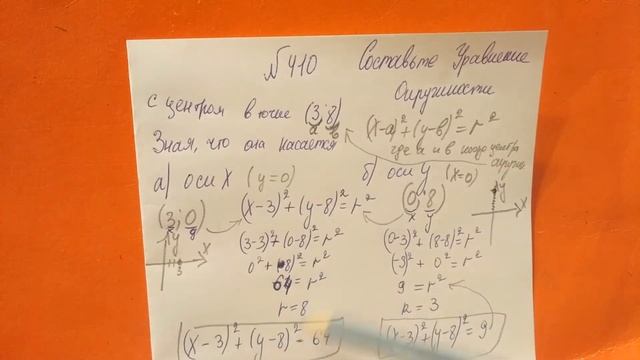 №410 Составьте Уравнение
Окружности
с центром в точке (3;8)
а в
(x-a)²+(y-в)²=r²
Зная, что она касается
где а и в коор центра
а) оси X (y=0)
б) оси y (x=0)
(3;0)
x y
(x-3)²+(y-8)²=r²
(0;8)
x y
y
x
3
y
x
(3-3)²+(0-8)²=r²
0²+(-8)²=r²
64=r²
r=8
(x-3)²+(y-8)²=64
(0-3)²+(8-8)²=r²
(-3)²+0²=r²
9=r²
r=3
(x-3)²+(y-8)²=9